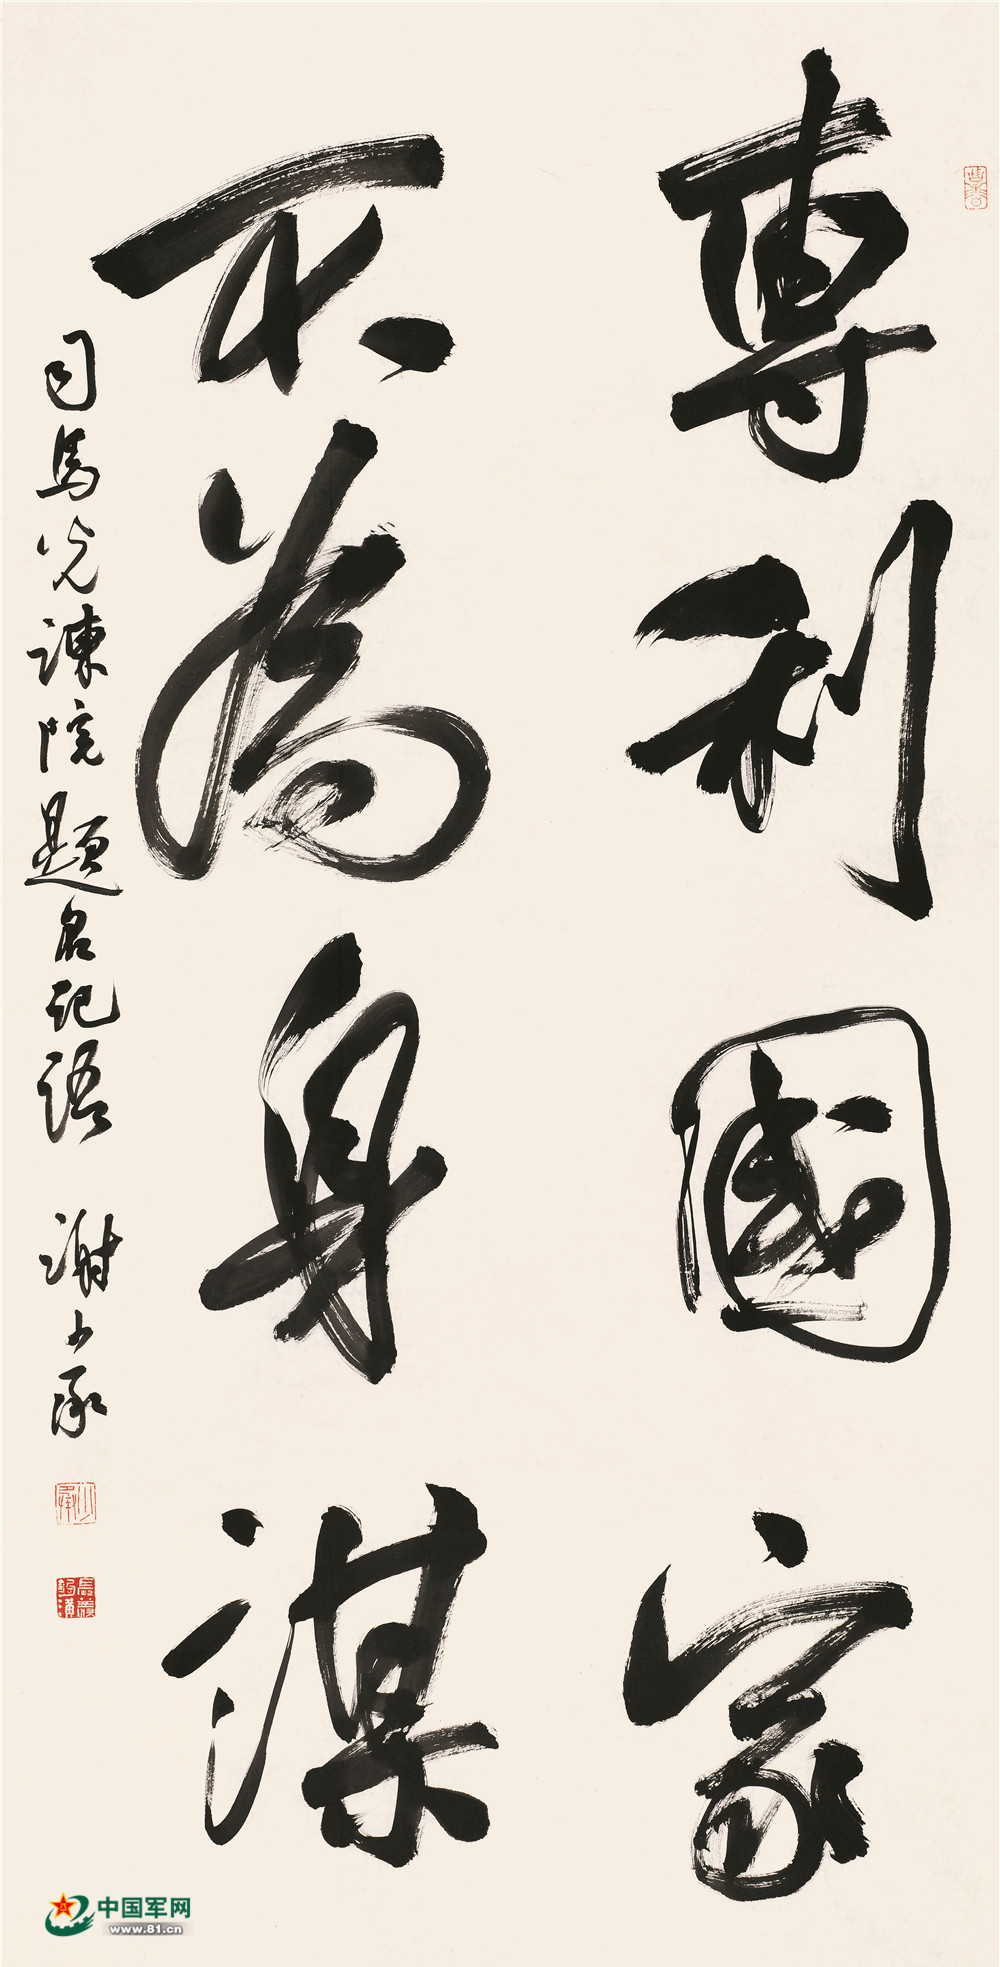 專利國家
不為身謀
司馬光諫院題名記語 謝少承
中国军网
www.81.cn